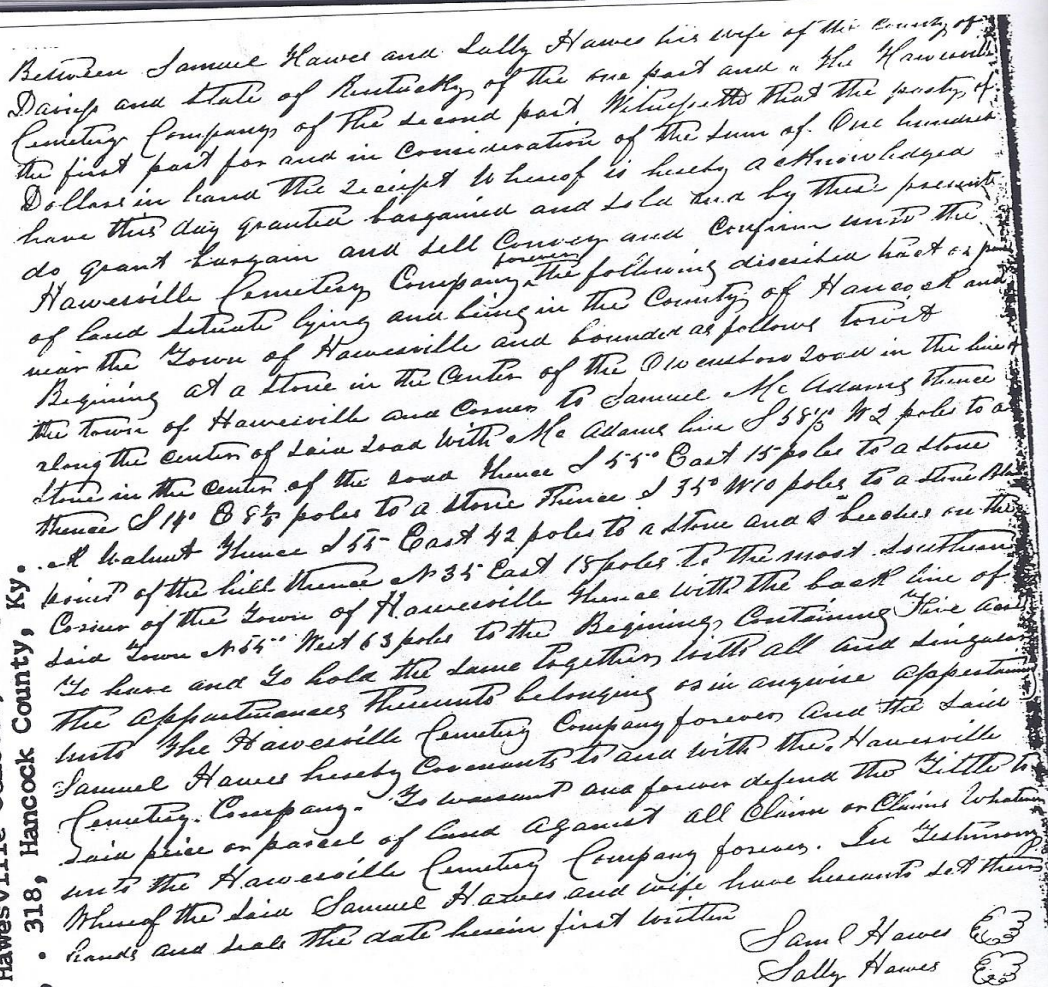 Between Samuel Hawes and Sally Hawes his wife of the County of
Daviess and State of Kentucky of the one part and "The Hawesville
Cemetery Company of the second part Witnesseth that the party of
the first part for and in consideration of the sum of One hundred
Dollars in hand the receipt whereof is hereby acknowledged
have this day granted bargained and sold and by these presents
do grant bargain and sell Convey and Confirm unto the
Hawesville Cemetery Company forever the following discribed tract or
of land situate lying and being in the County of Hancock and
near the Town of Hawesville and bounded as follows towit
Begining at a stone in the Center of the Owensboro road in the line of
the town of Hawesville and Corner to Samuel Mc Adams thence
along the center of said road with Mc Adams line S 58½ W 2 poles to a
stone in the center of the road thence S 55° East 15 poles to a stone
thence S 14° E 8½ poles to a stone thence S 35° W 10 poles to a stone
Walnut thence S 55 East 42 poles to a stone and 2 beeches on the
point of the hill thence N 35 East 18 poles to the most Southern
Corner of the Town of Hawesville thence with the back line of
said Town N 55° West 63 poles to the Begining Containing Five acres
To have and to hold the same together with all and singular
the appurtinances thereunto belonging or in anywise appertaining
unto The Hawesville Cemetery Company forever and the said
Samuel Hawes hereby Covenants to and with the Hawesville
Cemetery Company. To warrant and forever defend the Tittle to
said peice or parcel of land against all Claim or Claims Whatever
unto the Hawesville Cemetery Company forever. In Testimony
Whereof the said Samuel Hawes and wife have hereunto set their
hands and seals the date herein first written
Saml Hawes
Sally Hawes
Hawesville
. 318, Hancock County, Ky.